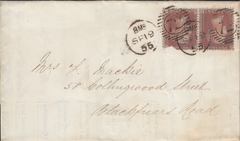 SP 19
55
Mrs J. Mackie
58 Collingwood Street
Blackfriars Road